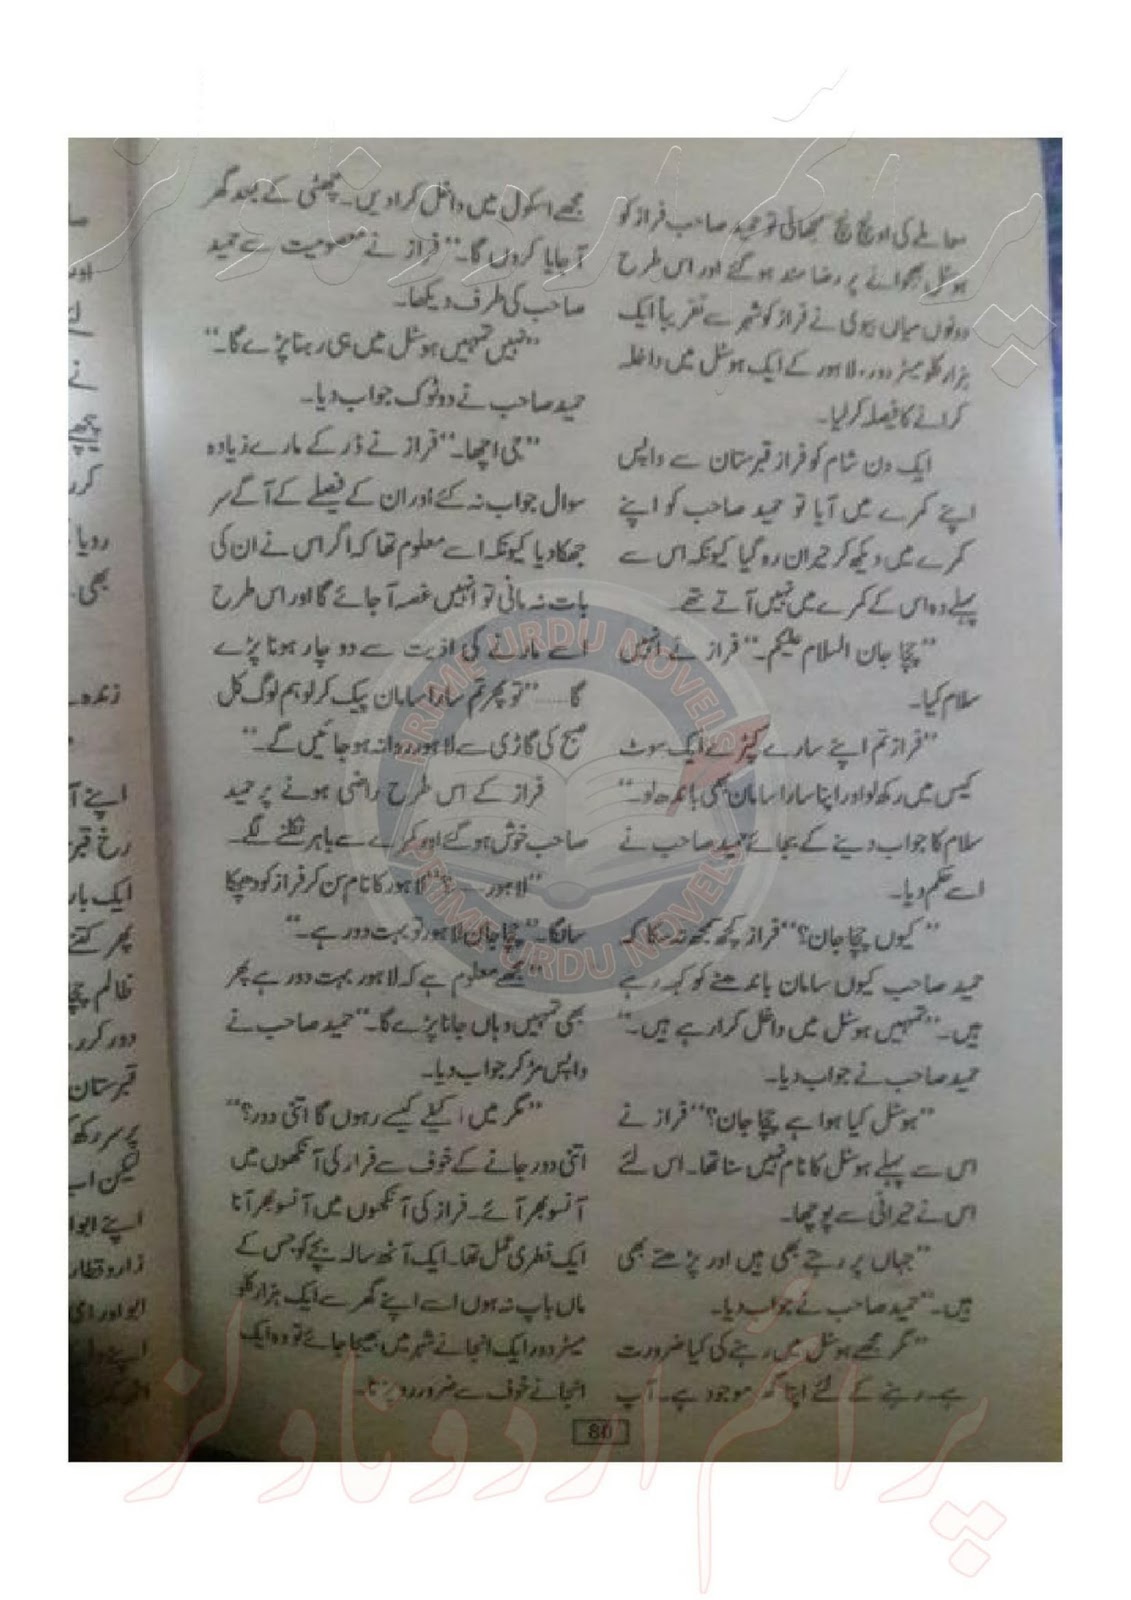 معاملے کی اونچ نیچ سمجھائی تو حمید صاحب فراز کو
ہوسٹل بھجوانے پر رضا مند ہو گئے اور اس طرح
دونوں میاں بیوی نے فراز کو شہر سے تقریباً ایک
ہزار کلو میٹر دور، لاہور کے ایک ہوسٹل میں داخلہ
کرانے کا فیصلہ کر لیا۔
ایک دن شام کو فراز قبرستان سے واپس
اپنے کمرے میں آیا تو حمید صاحب کو اپنے
کمرے میں دیکھ کر حیران رہ گیا کیونکہ اس سے
پہلے وہ اس کے کمرے میں نہیں آتے تھے۔
”چچا جان السلام علیکم۔“ فراز نے انہیں
سلام کیا۔
”فراز تم اپنے سارے کپڑے ایک سوٹ
کیس میں رکھ لو اور اپنا سارا سامان بھی باندھ لو۔“
سلام کا جواب دینے کے بجائے حمید صاحب نے
اسے حکم دیا۔
”کیوں چچا جان؟“ فراز کچھ سمجھ نہ سکا کہ
حمید صاحب کیوں سامان باندھنے کو کہہ رہے
ہیں۔ ”تمہیں ہوسٹل میں داخل کرا رہے ہیں۔“
حمید صاحب نے جواب دیا۔
”ہوسٹل کیا ہوا ہے چچا جان؟“ فراز نے
اس سے پہلے ہوسٹل کا نام نہیں سنا تھا۔ اس لئے
اس نے حیرانی سے پوچھا۔
”جہاں پر رہتے بھی ہیں اور پڑھتے بھی
ہیں۔“ حمید صاحب نے جواب دیا۔
”مگر مجھے ہوسٹل میں رہنے کی کیا ضرورت
ہے۔ رہنے کے لئے اپنا گھر موجود ہے۔ آپ
مجھے اسکول میں داخل کرا دیں۔ چھٹی کے بعد گھر
آ جایا کروں گا۔“ فراز نے معصومیت سے حمید
صاحب کی طرف دیکھا۔
”نہیں تمہیں ہوسٹل میں ہی رہنا پڑے گا۔“
حمید صاحب نے دوٹوک جواب دیا۔
”جی اچھا۔“ فراز نے ڈر کے مارے زیادہ
سوال جواب نہ کئے اور ان کے فیصلے کے آگے سر
جھکا دیا کیونکہ اسے معلوم تھا کہ اگر اس نے ان کی
بات نہ مانی تو انہیں غصہ آ جائے گا اور اس طرح
اسے مارنے کی اذیت سے دو چار ہونا پڑے
گا...... ”تو پھر تم سارا سامان پیک کر لو ہم لوگ کل
صبح کی گاڑی سے لاہور روانہ ہو جائیں گے۔“
فراز کے اس طرح راضی ہونے پر حمید
صاحب خوش ہو گئے اور کمرے سے باہر نکلنے لگے۔
”لاہور......؟“ لاہور کا نام سن کر فراز کو دھچکا
سا لگا۔ ”چچا جان لاہور تو بہت دور ہے۔“
”مجھے معلوم ہے کہ لاہور بہت دور ہے پھر
بھی تمہیں وہاں جانا پڑے گا۔“ حمید صاحب نے
واپس مڑ کر جواب دیا۔
”مگر میں اکیلے کیسے رہوں گا اتنی دور؟“
اتنی دور جانے کے خوف سے فراز کی آنکھوں میں
آنسو بھر آئے۔ فراز کی آنکھوں میں آنسو بھر آنا
ایک فطری عمل تھا۔ ایک آٹھ سالہ بچے کو جس کے
ماں باپ نہ ہوں اسے اپنے گھر سے ایک ہزار کلو
میٹر دور ایک انجانے شہر میں بھیجا جائے تو وہ ایک
انجانے خوف سے ضرور رو پڑتا۔
80
رویا
بھی۔
زندہ۔
اپنے آ
رخ قبر
ایک بار
پھر کتنے
ظالم چچا
دور کر ر
قبرستان
پر سر رکھ ک
لیکن اب
اپنے ابو ا
زار و قطار
ابو اور امی
PRIME URDU NOVELS
PRIME URDU NOVELS
پرائم اردو ناولز
پرائم اردو ناولز